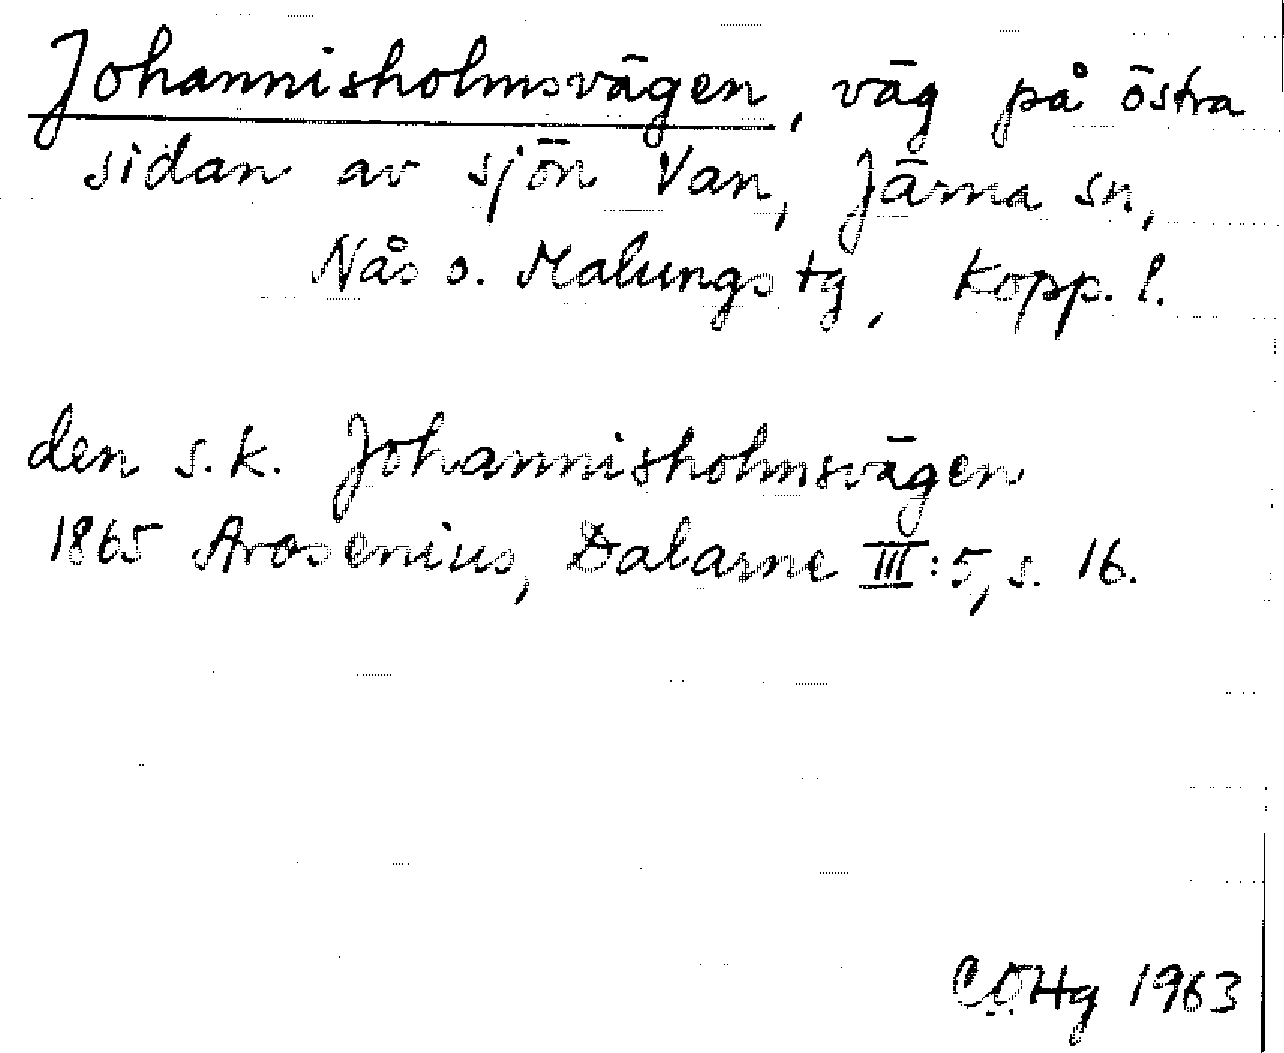 Johannisholmsvägen, väg på östra
sidan av sjön Van, Järna sn,
Nås o. Malungs tg, Kopp. l.
den s.k. Johannisholmsvägen
1865 Arosenius, Dalarne III:5, s. 16.
CÖHg 1963